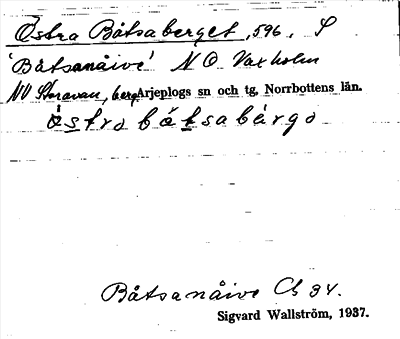 Östra Båtsaberget, 596. S
'Båtsanåive' NO Vaxholm
NV Storavan, berg. Arjeplogs sn och tg, Norrbottens län.
östra båtsabärgo
Båtsanåive Cb 34.
Sigvard Wallström, 1937.